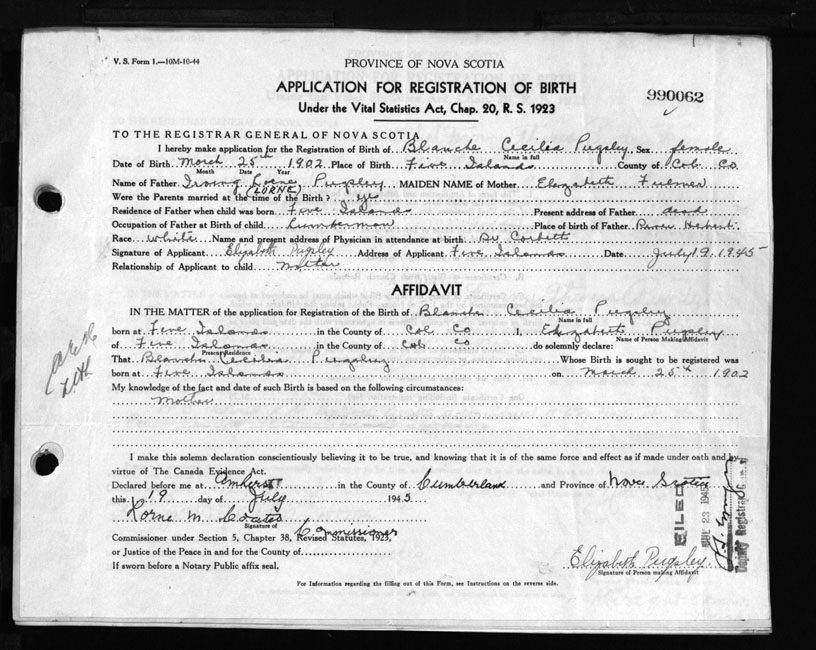 V. S. Form 1.—10M-10-44
PROVINCE OF NOVA SCOTIA
APPLICATION FOR REGISTRATION OF BIRTH
Under the Vital Statistics Act, Chap. 20, R. S. 1923
990062
TO THE REGISTRAR GENERAL OF NOVA SCOTIA
I hereby make application for the Registration of Birth of Blanche Cecilia Pugsley Sex female
Name in full
Date of Birth March 25th 1902 Place of Birth Five Islands County of Col. Co
Month Day Year
Name of Father Irving Lorne Pugsley MAIDEN NAME of Mother Elizabeth Fulmer
(LORNE)
Were the Parents married at the time of the Birth? yes
Residence of Father when child was born Five Islands Present address of Father dead
Occupation of Father at Birth of child Lumberman Place of birth of Father River Hebert
Race white Name and present address of Physician in attendance at birth Dr Corbett
Signature of Applicant Elizabeth Pugsley Address of Applicant Five Islands Date July 19. 1945
Relationship of Applicant to child Mother
AFFIDAVIT
IN THE MATTER of the application for Registration of the Birth of Blanche Cecilia Pugsley
Name in full
born at Five Islands in the County of Col. Co I, Elizabeth Pugsley
Name of Person Making Affidavit
of Five Islands in the County of Col Co do solemnly declare:
Present Residence
That Blanche Cecilia Pugsley Whose Birth is sought to be registered was
born at Five Islands on March 25th 1902
My knowledge of the fact and date of such Birth is based on the following circumstances:
Mother
I make this solemn declaration conscientiously believing it to be true, and knowing that it is of the same force and effect as if made under oath and by
virtue of The Canada Evidence Act.
Declared before me at Amherst in the County of Cumberland and Province of Nova Scotia
this 19 day of July 1945
Lorne M Coates
Signature of
Commissioner
Commissioner under Section 5, Chapter 38, Revised Statutes, 1923,
or Justice of the Peace in and for the County of
If sworn before a Notary Public affix seal.
Elizabeth Pugsley
Signature of Person making Affidavit
For Information regarding the filling out of this Form, see Instructions on the reverse side.
FILED
JUL 23 1945
Deputy Registrar